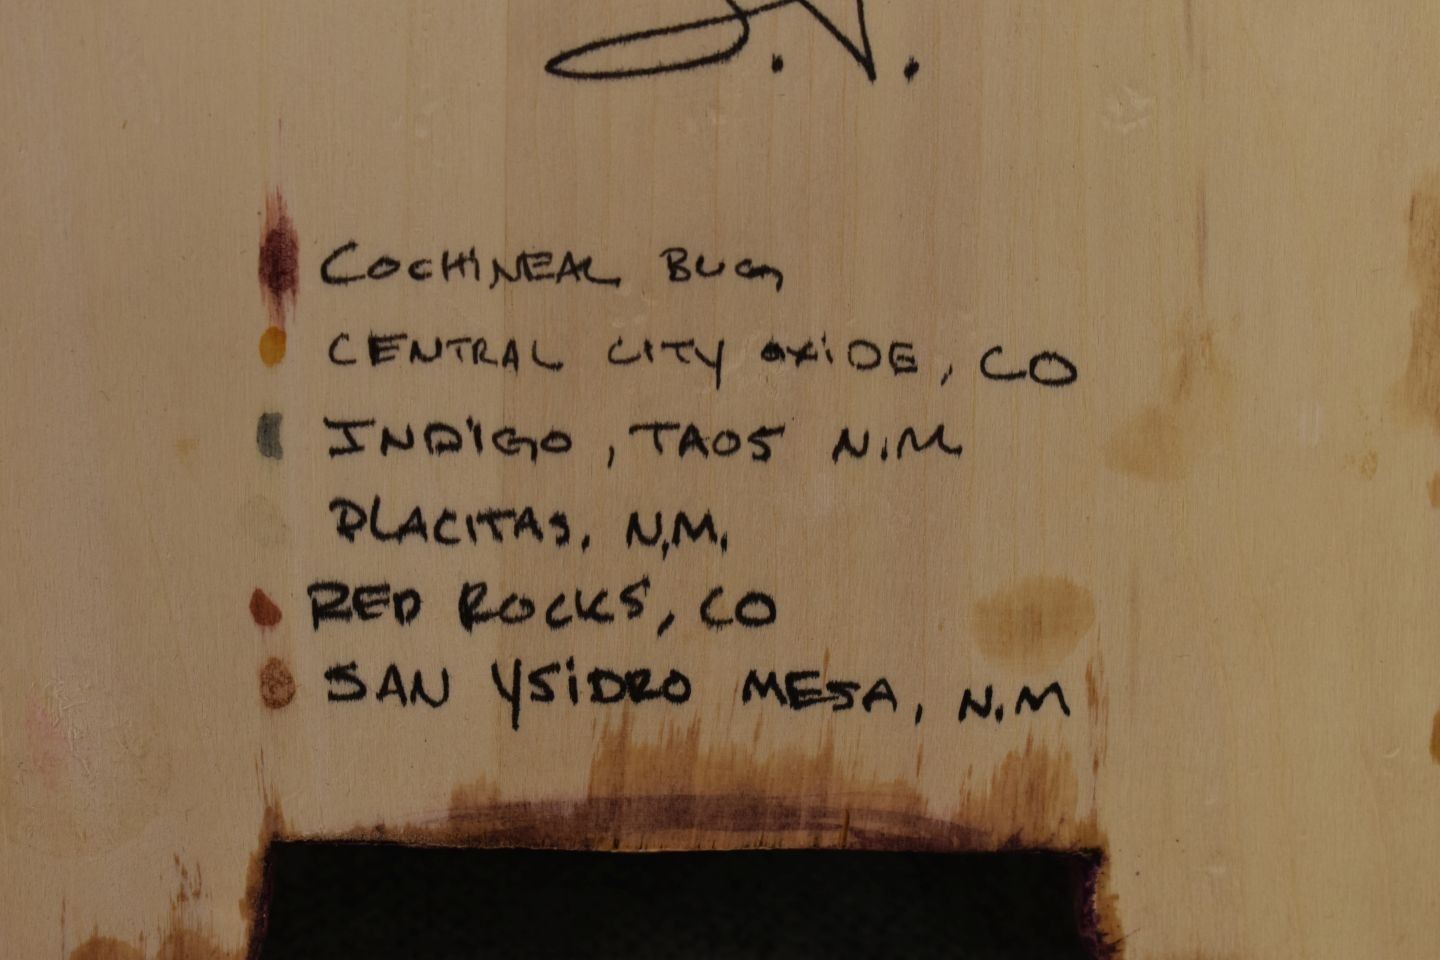 COCHINEAL BUG
CENTRAL CITY OXIDE, CO
INDIGO, TAOS N.M
PLACITAS, N.M.
RED ROCKS, CO
SAN YSIDRO MESA, N.M